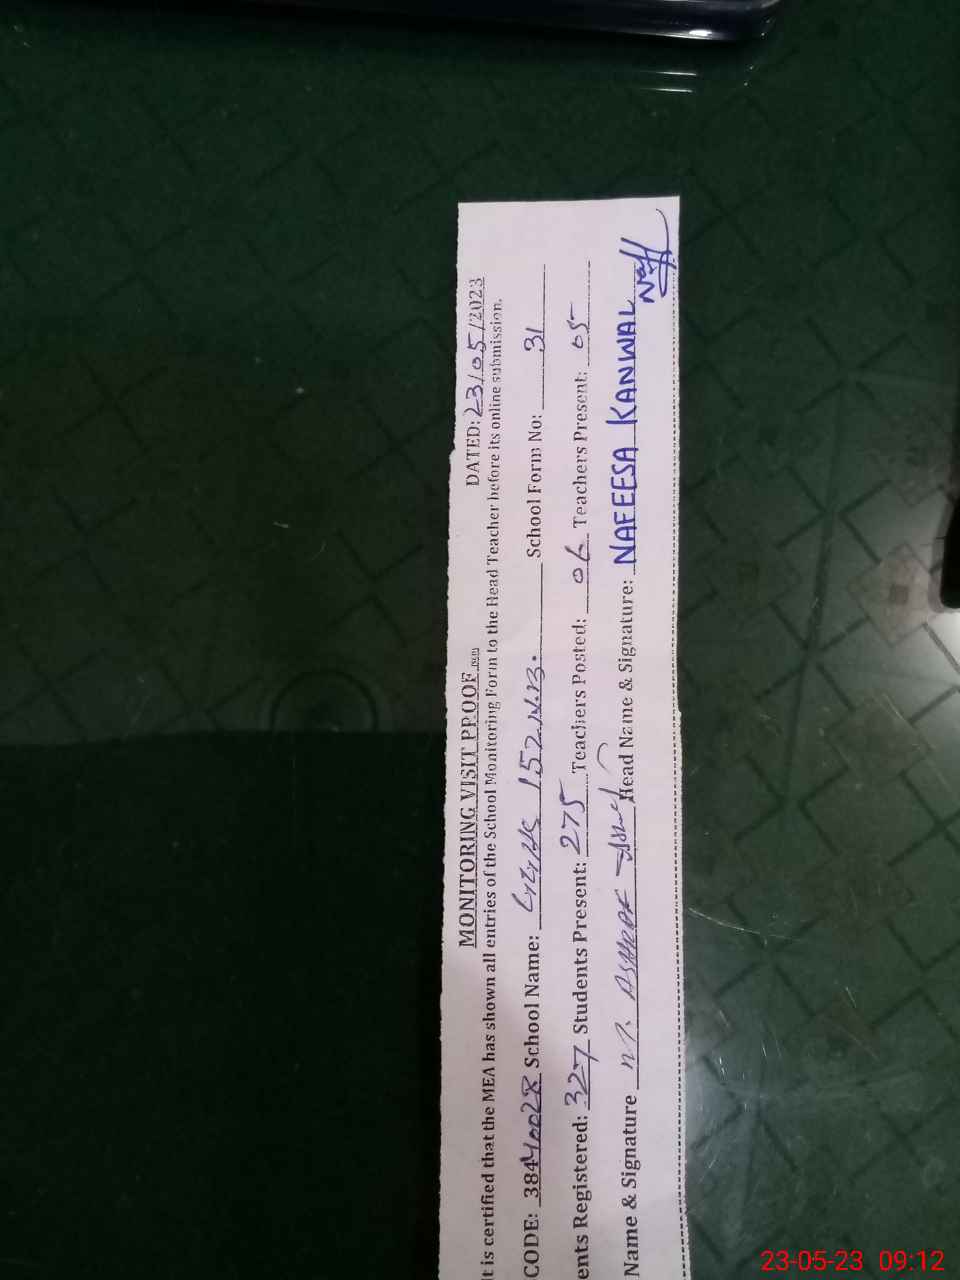 MONITORING VISIT PROOF DATED: 23/05/2023
It is certified that the MEA has shown all entries of the School Monitoring Form to the Head Teacher before its online submission.
CODE: 38440028 School Name: GGHS 152.N.B. School Form No: 31
ents Registered: 327 Students Present: 275 Teachers Posted: 06 Teachers Present: 05
Name & Signature M. ASHRAF Head Name & Signature: NAFEESA KANWAL
23-05-23 09:12